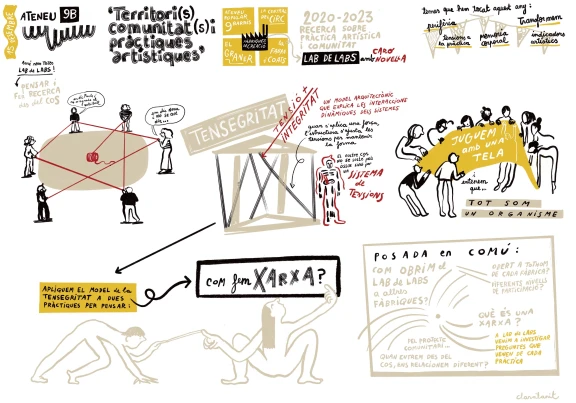 15 NOVEMBRE
ATENEU 9B
'Territori(s)
comunitat(s) i
pràctiques
artístiques'
ATENEU
POPULAR
9BARRIS
LA CENTRAL
DEL CIRC
EL
GRANER
FÀBRIQUES
DE CREACIÓ
LA
FABRA I
COATS
2020-2023
RECERCA SOBRE
PRÀCTICA ARTÍSTICA
COMUNITAT
LAB DE LABS
amb CARO
NOVELLA
temes que hem tocat aquest any:
perifèria
tensions a
la pràctica
memòria
corporal
Transformem
indicadors
artístics
LAB de LABS!
PENSAR i
FER RECERCA
des del COS
TENSEGRITAT
TENSIÓ +
INTEGRITAT
UN MODEL ARQUITECTÒNIC
QUE EXPLICA LES INTERACCIONS
DINÀMIQUES DELS SISTEMES
quan s'aplica una força,
l'estructura s'ajusta les
tensions per mantenir
la forma
SISTEMA
de
TENSIONS
JUGUEM
amb UNA
TELA
i entenem
que...
TOT SOM
UN ORGANISME
APLIQUEM EL MODEL de la
TENSEGRITAT A DUES
PRÀCTIQUES PER PENSAR:
COM fem XARXA?
POSADA en COMÚ:
COM OBRIM el
LAB de LABS
a altres
FÀBRIQUES?
OBERT A TOTHOM
DE CADA FÀBRICA?
DIFERENTS NIVELLS
DE PARTICIPACIÓ?
QUÈ ÉS UNA
XARXA?
A LAB de LABS
VENIM A INVESTIGAR
PREGUNTES QUE
VENEN DE CADA
PRÀCTICA
PEL PROJECTE
COMUNITARI...
QUAN ENTREM DES DEL
COS, ENS RELACIONEM DIFERENT?